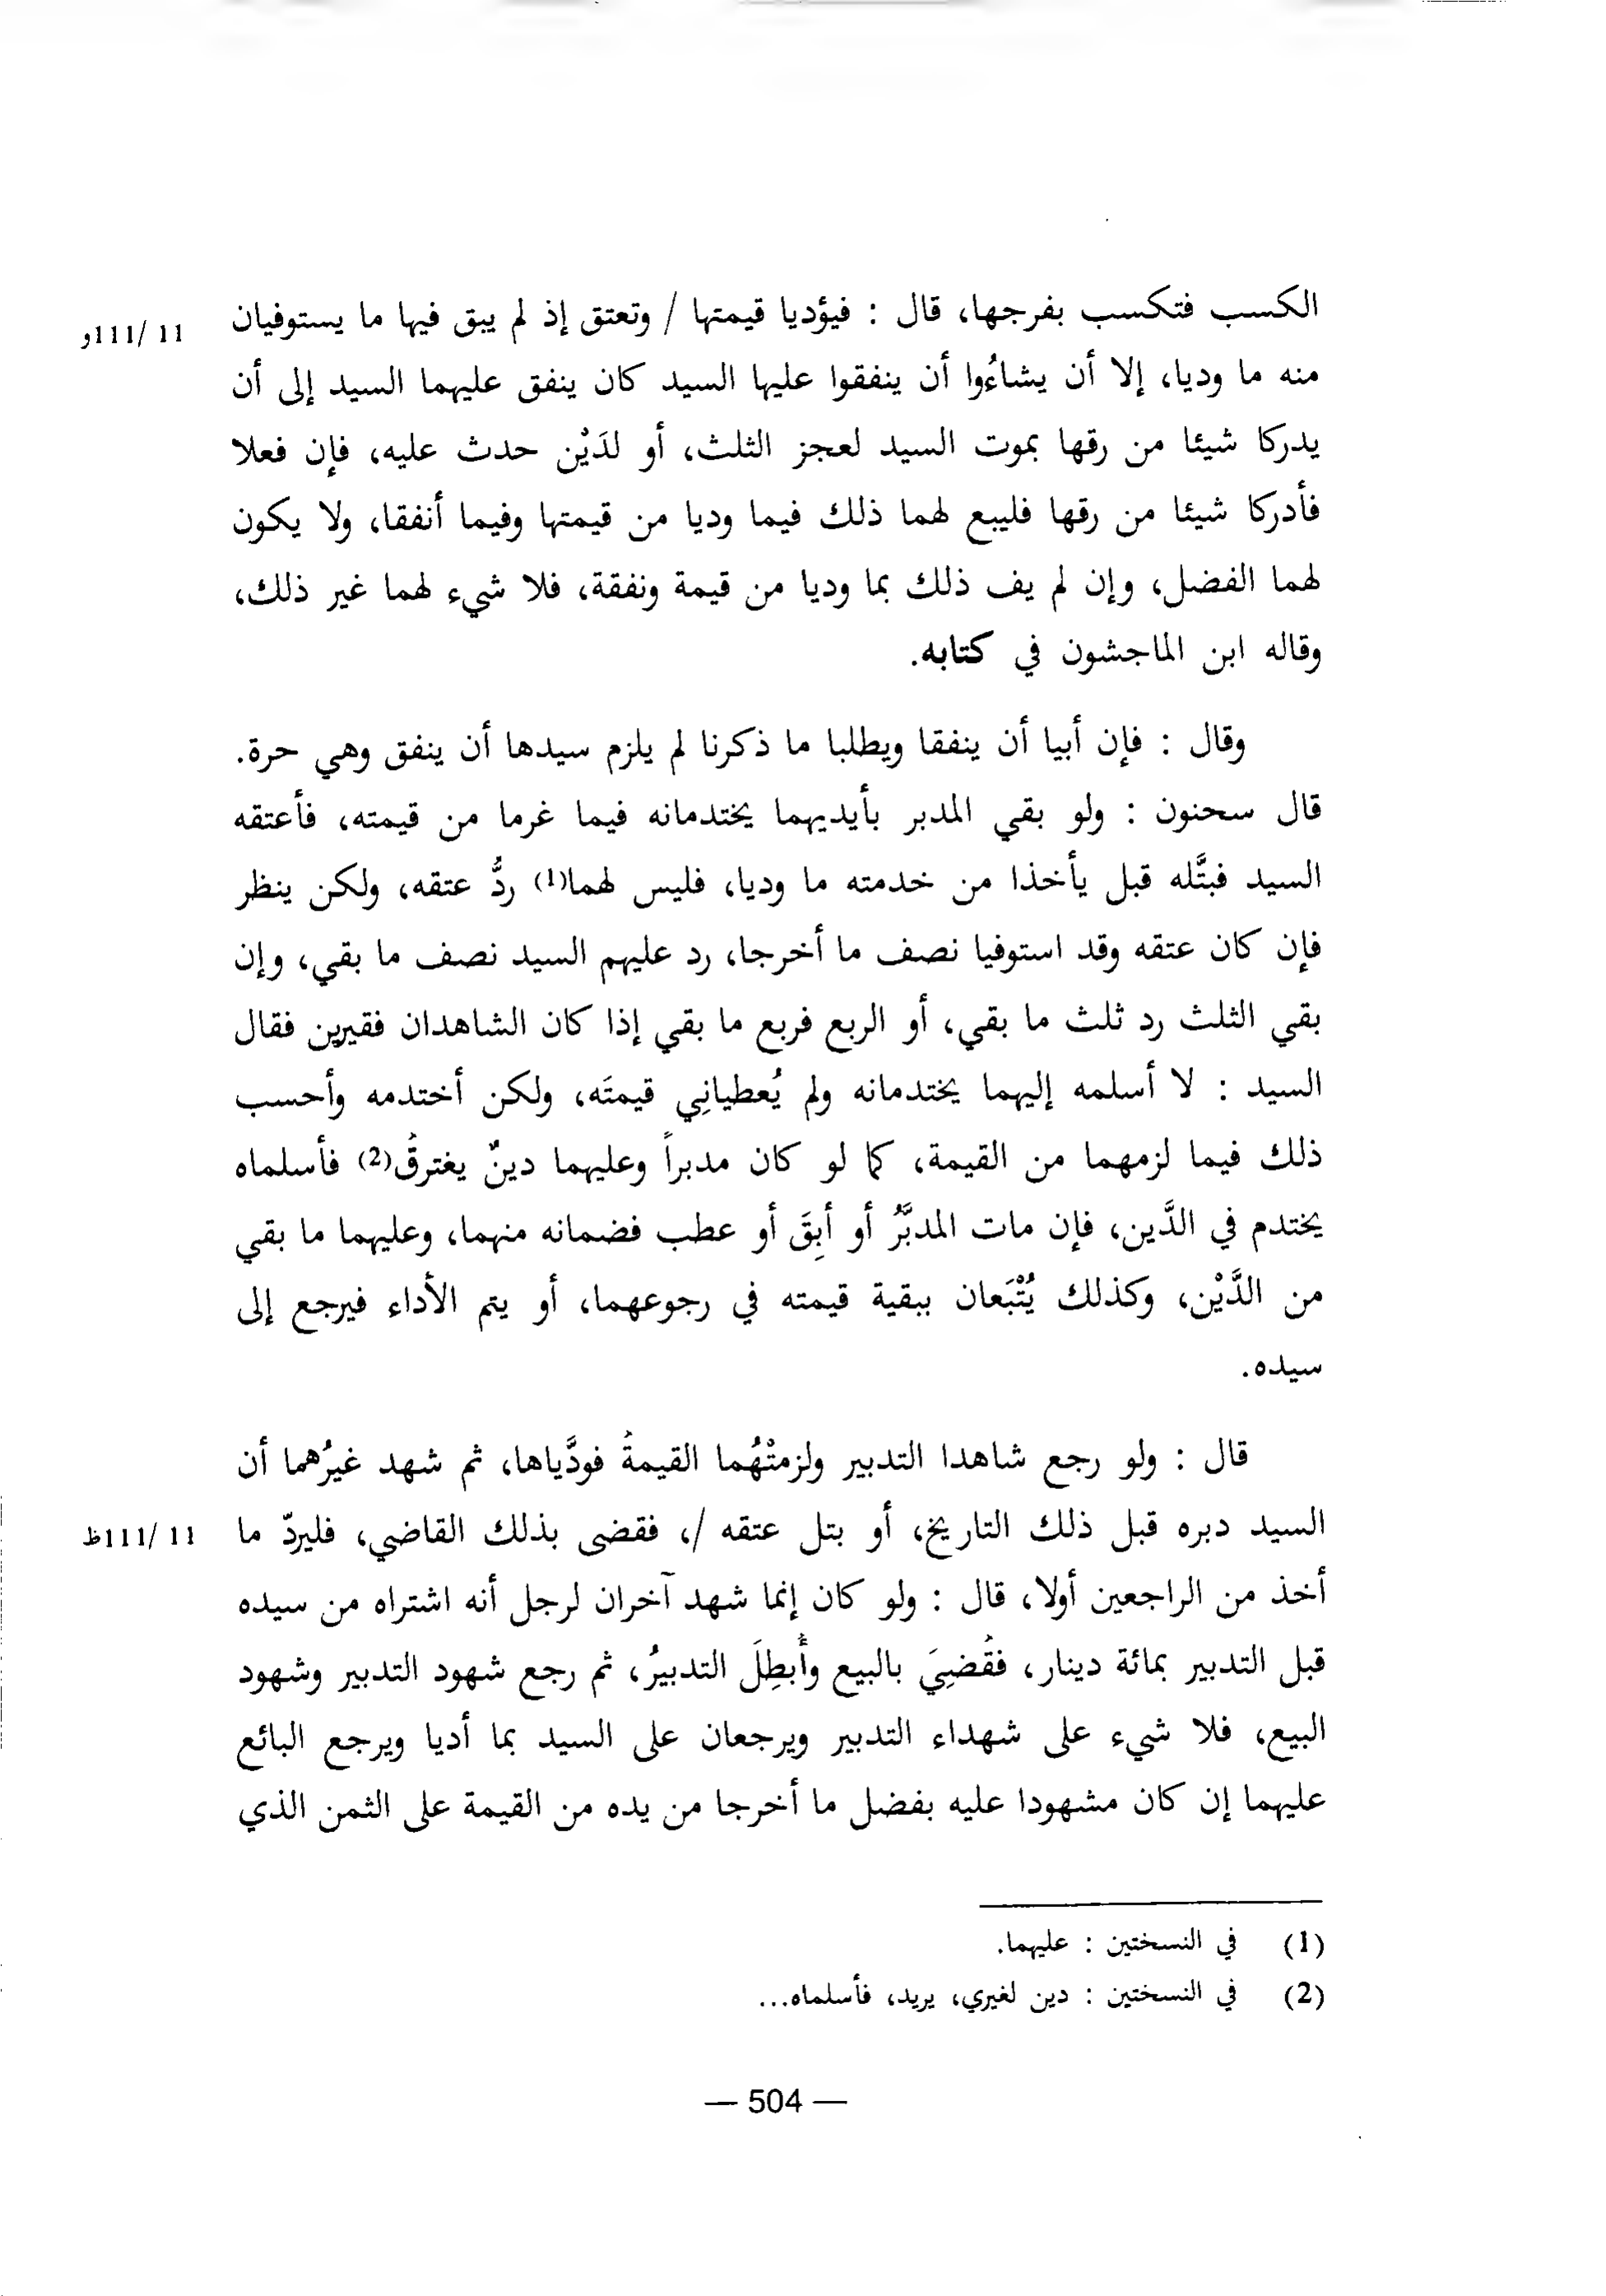 الكسب فتكسب بفرجها، قال : فيؤديا قيمتها / وتعتق إذ لم يبق فيها ما يستوفيان
11 /111و
منه ما وديا، إلا أن يشاءُوا أن ينفقوا عليها السيد كان ينفق عليهما السيد إلى أن
يدركا شيئا من رقها بموت السيد لعجز الثلث، أو لدَيْن حدث عليه، فإن فعلا
فأدركا شيئا من رقها فليبع لهما ذلك فيما وديا من قيمتها وفيما أنفقا، ولا يكون
لهما الفضل، وإن لم يف ذلك بما وديا من قيمة ونفقة، فلا شيء لهما غير ذلك،
وقاله ابن الماجشون في كتابه.
وقال : فإن أبيا أن ينفقا ويطلبا ما ذكرنا لم يلزم سيدها أن ينفق وهي حرة.
قال سحنون : ولو بقي المدبر بأيديهما يختدمانه فيما غرما من قيمته، فأعتقه
السيد فبتَّله قبل يأخذا من خدمته ما وديا، فليس لهما(1) ردُّ عتقه، ولكن ينظر
فإن كان عتقه وقد استوفيا نصف ما أخرجا، رد عليهم السيد نصف ما بقي، وإن
بقي الثلث رد ثلث ما بقي، أو الربع فربع ما بقي إذا كان الشاهدان فقيرين فقال
السيد : لا أسلمه إليهما يختدمانه ولم يُعطيانِي قيمتَه، ولكن أختدمه وأحسب
ذلك فيما لزمهما من القيمة، كما لو كان مدبراً وعليهما دينٌ يغترقُ(2) فأسلماه
يختدم في الدَّين، فإن مات المدبَّرُ أو أبِقَ أو عطب فضمانه منهما، وعليهما ما بقي
من الدَّيْن، وكذلك يُتْبَعان ببقية قيمته في رجوعهما، أو يتم الأداء فيرجع إلى
سيده.
قال : ولو رجع شاهدا التدبير ولزمتْهُما القيمةُ فودَّياها، ثم شهد غيرُهما أن
السيد دبره قبل ذلك التاريخ، أو بتل عتقه /، فقضى بذلك القاضي، فليردّ ما
11 /111ظ
أخذ من الراجعين أولا، قال : ولو كان إنما شهد آخران لرجل أنه اشتراه من سيده
قبل التدبير بمائة دينار، فقُضيَ بالبيع وأُبطِلَ التدبيرُ، ثم رجع شهود التدبير وشهود
البيع، فلا شيء على شهداء التدبير ويرجعان على السيد بما أديا ويرجع البائع
عليهما إن كان مشهودا عليه بفضل ما أخرجا من يده من القيمة على الثمن الذي
(1) في النسختين : عليهما.
(2) في النسختين : دين لغيري، يريد، فأسلماه...
— 504 —